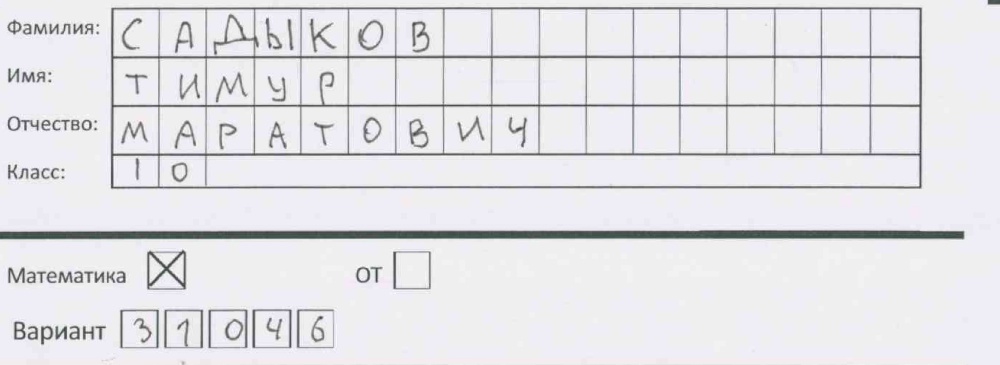 Фамилия: САДЫКОВ
Имя: ТИМУР
Отчество: МАРАТОВИЧ
Класс: 10
Математика ☒ ОТ ☐
Вариант 31046